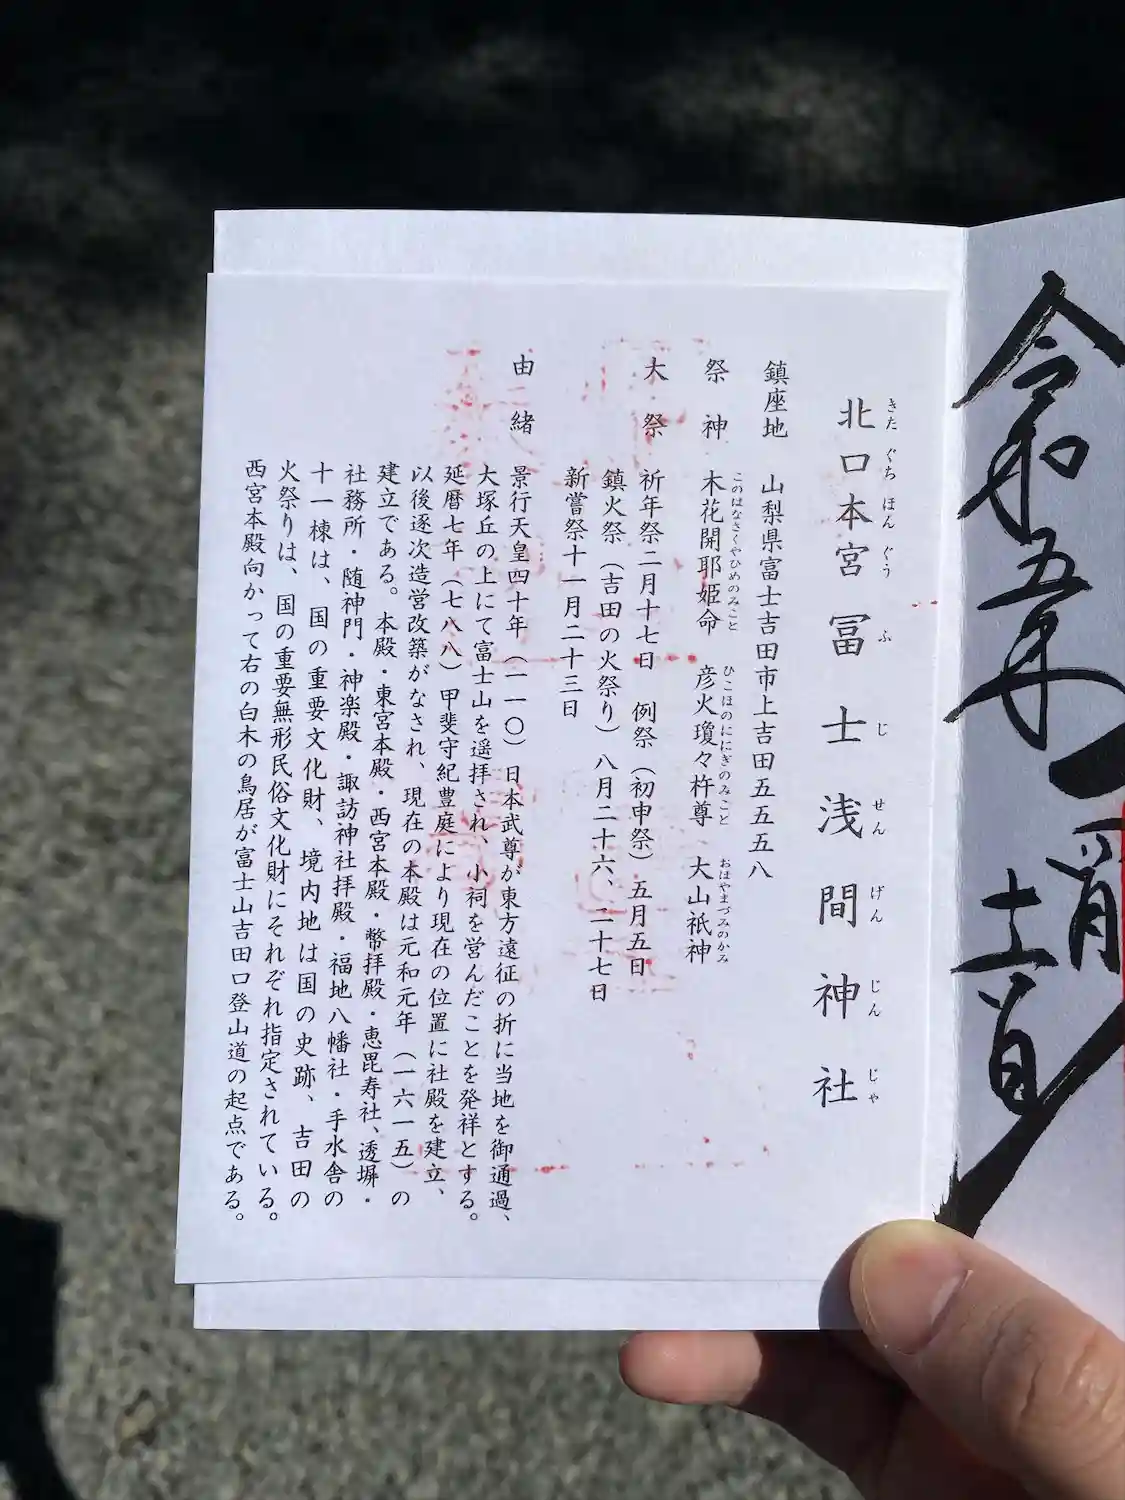 令和五年
北口本宮冨士浅間神社
きたぐちほんぐうふじせんげんじんじゃ
鎮座地 山梨県富士吉田市上吉田五五五八
祭神 木花開耶姫命 彦火瓊々杵尊 大山祇神
このはなさくやひめのみこと ひこほのににぎのみこと おほやまづみのかみ
大祭 祈年祭二月十七日 例祭（初申祭）五月五日
鎮火祭（吉田の火祭り）八月二十六、二十七日
新嘗祭十一月二十三日
由緒 景行天皇四十年（一一〇）日本武尊が東方遠征の折に当地を御通過、
大塚丘の上にて富士山を遥拝され、小祠を営んだことを発祥とする。
延暦七年（七八八）甲斐守紀豊庭により現在の位置に社殿を建立、
以後逐次造営改築がなされ、現在の本殿は元和元年（一六一五）の
建立である。本殿・東宮本殿・西宮本殿・幣拝殿・恵毘寿社、透塀・
社務所・随神門・神楽殿・諏訪神社拝殿・福地八幡社・手水舎の
十一棟は、国の重要文化財、境内地は国の史跡、吉田の
火祭りは、国の重要無形民俗文化財にそれぞれ指定されている。
西宮本殿向かって右の白木の鳥居が富士山吉田口登山道の起点である。